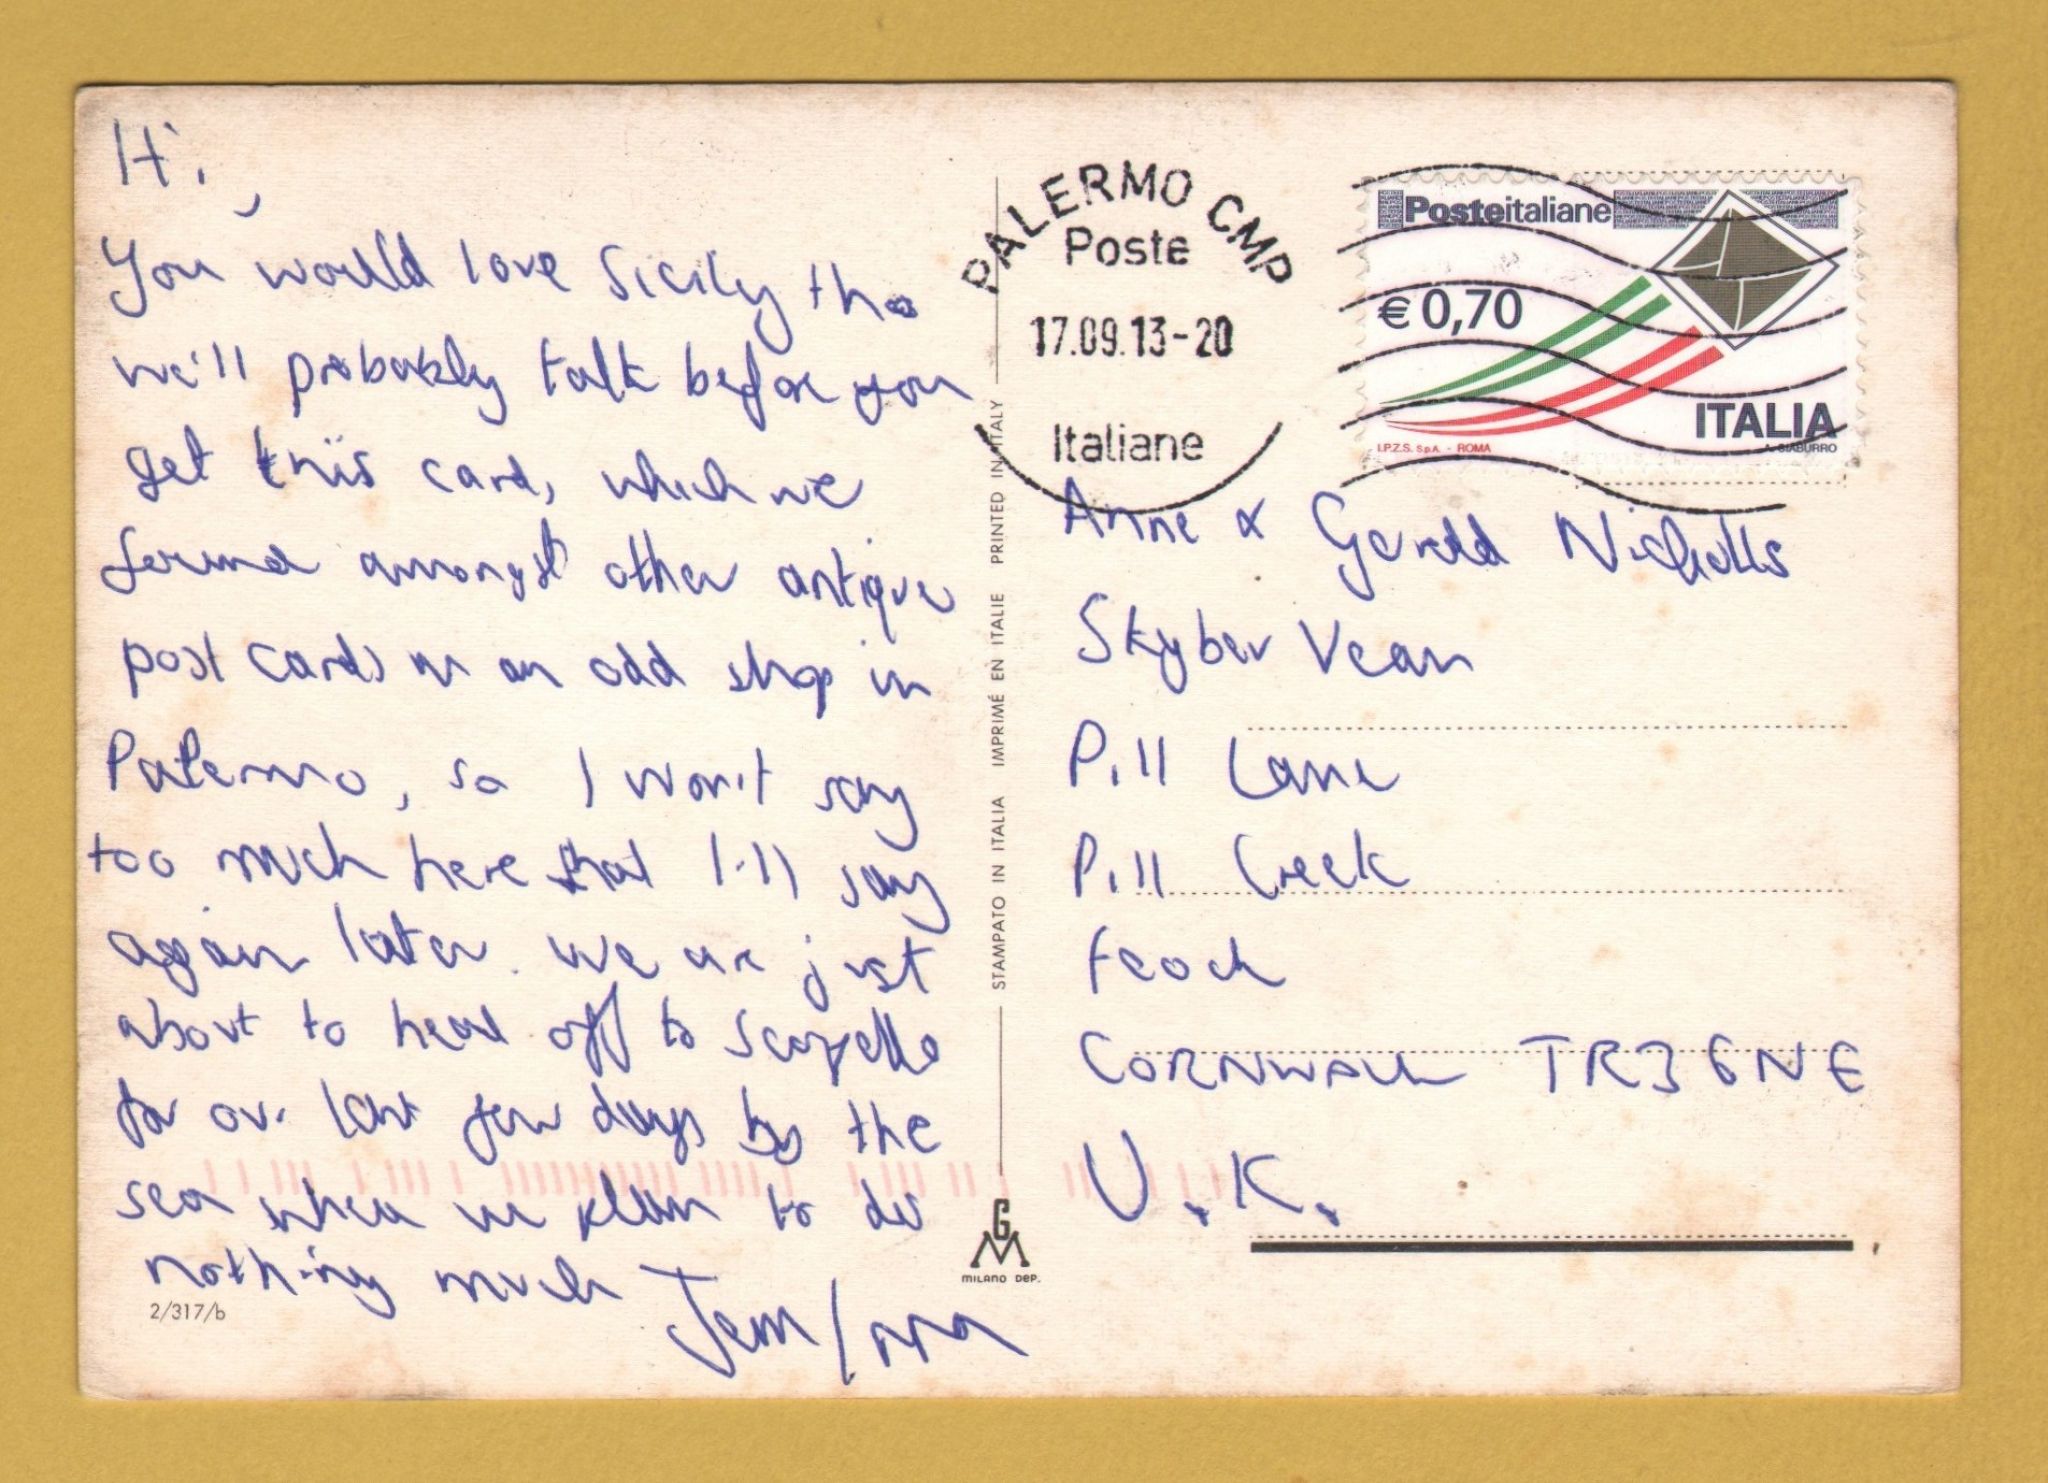 Hi,
You would love Sicily tho
we'll probably talk before you
get this card, which we
found amongst other antique
post cards in an odd shop in
Palermo, so I won't say
too much here that I'll say
again later. We are just
about to head off to Scopello
for our last few days by the
sea when we plan to do
nothing much
Jem /
2/317/b
PALERMO CMP
Poste
17.09.13-20
Italiane
Posteitaliane
€ 0,70
ITALIA
I.P.Z.S. S.p.A. - ROMA
A. CIABURRO
STAMPATO IN ITALIA IMPRIMÉ EN ITALIE PRINTED IN ITALY
GM
MILANO DEP.
Anne & Gerald Nicholls
Skyber Vean
Pill Lane
Pill Creek
Feock
CORNWALL TR3 6NE
U.K.